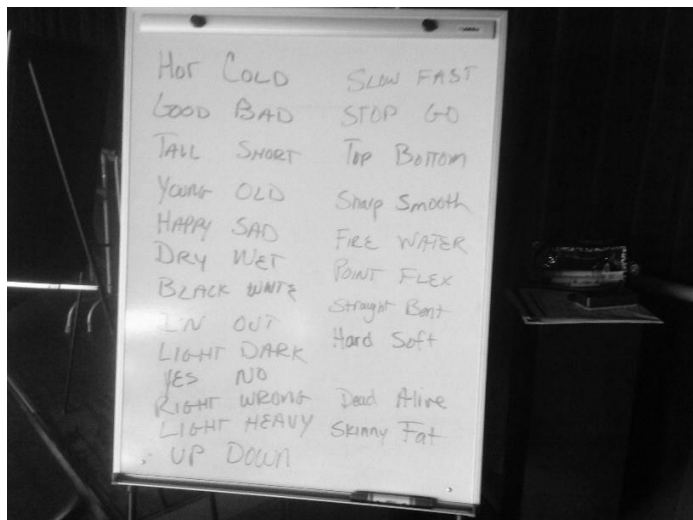 HOT COLD
GOOD BAD
TALL SHORT
YOUNG OLD
HAPPY SAD
DRY WET
BLACK WHITE
IN OUT
LIGHT DARK
YES NO
RIGHT WRONG
LIGHT HEAVY
UP DOWN
SLOW FAST
STOP GO
TOP BOTTOM
Sharp Smooth
FIRE WATER
POINT FLEX
Straight Bent
Hard Soft
Dead Alive
Skinny Fat